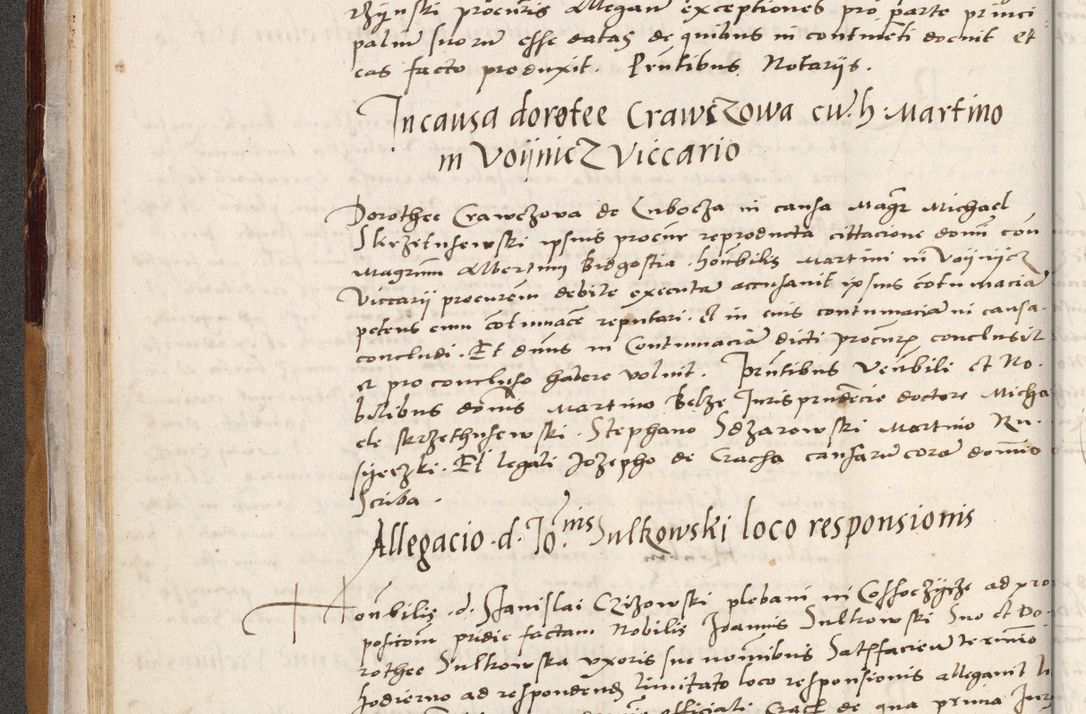 rzynski procuris Allegan exceptiones pro parte princi
paliu suoru esse datas de quibus in continenti docuit et
eas facto produxit. Prntibus Notariis.
In causa dorotee Crawczowa cu. h. Martino
in Voyinicz Viccario
Dorothee Crawczova de Lubocza in causa Magr Michael
Skrzetusewski ipsius procur reproducta cittacione domi con
Magrum Albertum Bidgostia honbilis Martini in Voyinicz
Viccarij procurem debite executa accusauit ipsius cotumacia
petens eum cotumace reputari. et in eius contumacia in causa
concludi. Et dnus in Contumacia dicti procuris conclusit
et pro concluso habere voluit. Prntibus Venbili et No-
bilibus domis Martino Belze Jurisprudecie doctore Micha
ele skrzethusewski. Stephano Sdzarowski Martino Ru-
syeczki. Et legali Jozepho de Cracha causaru cora domio
Scriba.
Allegacio d. Jo.nis Sulkowski loco responsionis
Honbilis d. Stanislai Czizowski plebani in Cossoczycze ad pro
positom pridie factam Nobilis Joannis Sulkowski Suo et Do-
rothee Sulkowska vxoris sue nominibus Satisfacieu termino
hodierno ad respondend limitato loco responsionis allegauit
officiali Crac de qua prima